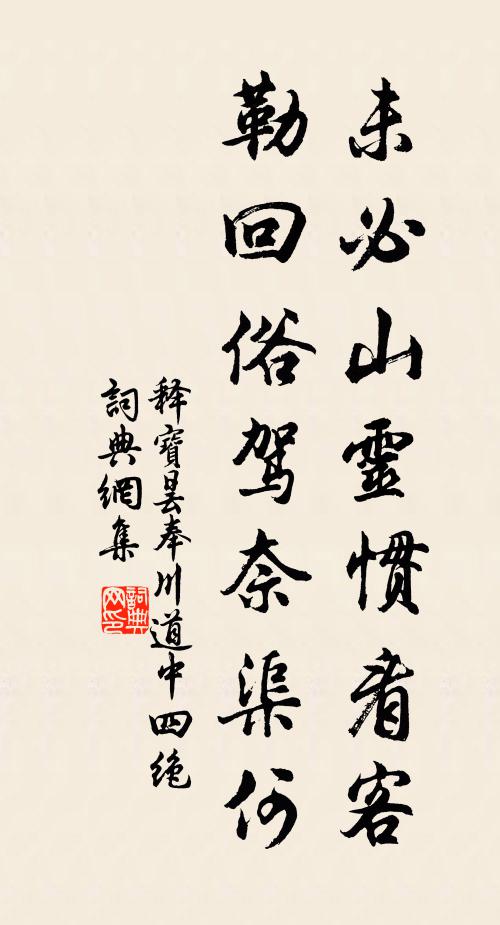 未必山靈慣看客
勒回俗駕奈渠何
释寶曇奉川道中四絶
詞典網集
詞典网印